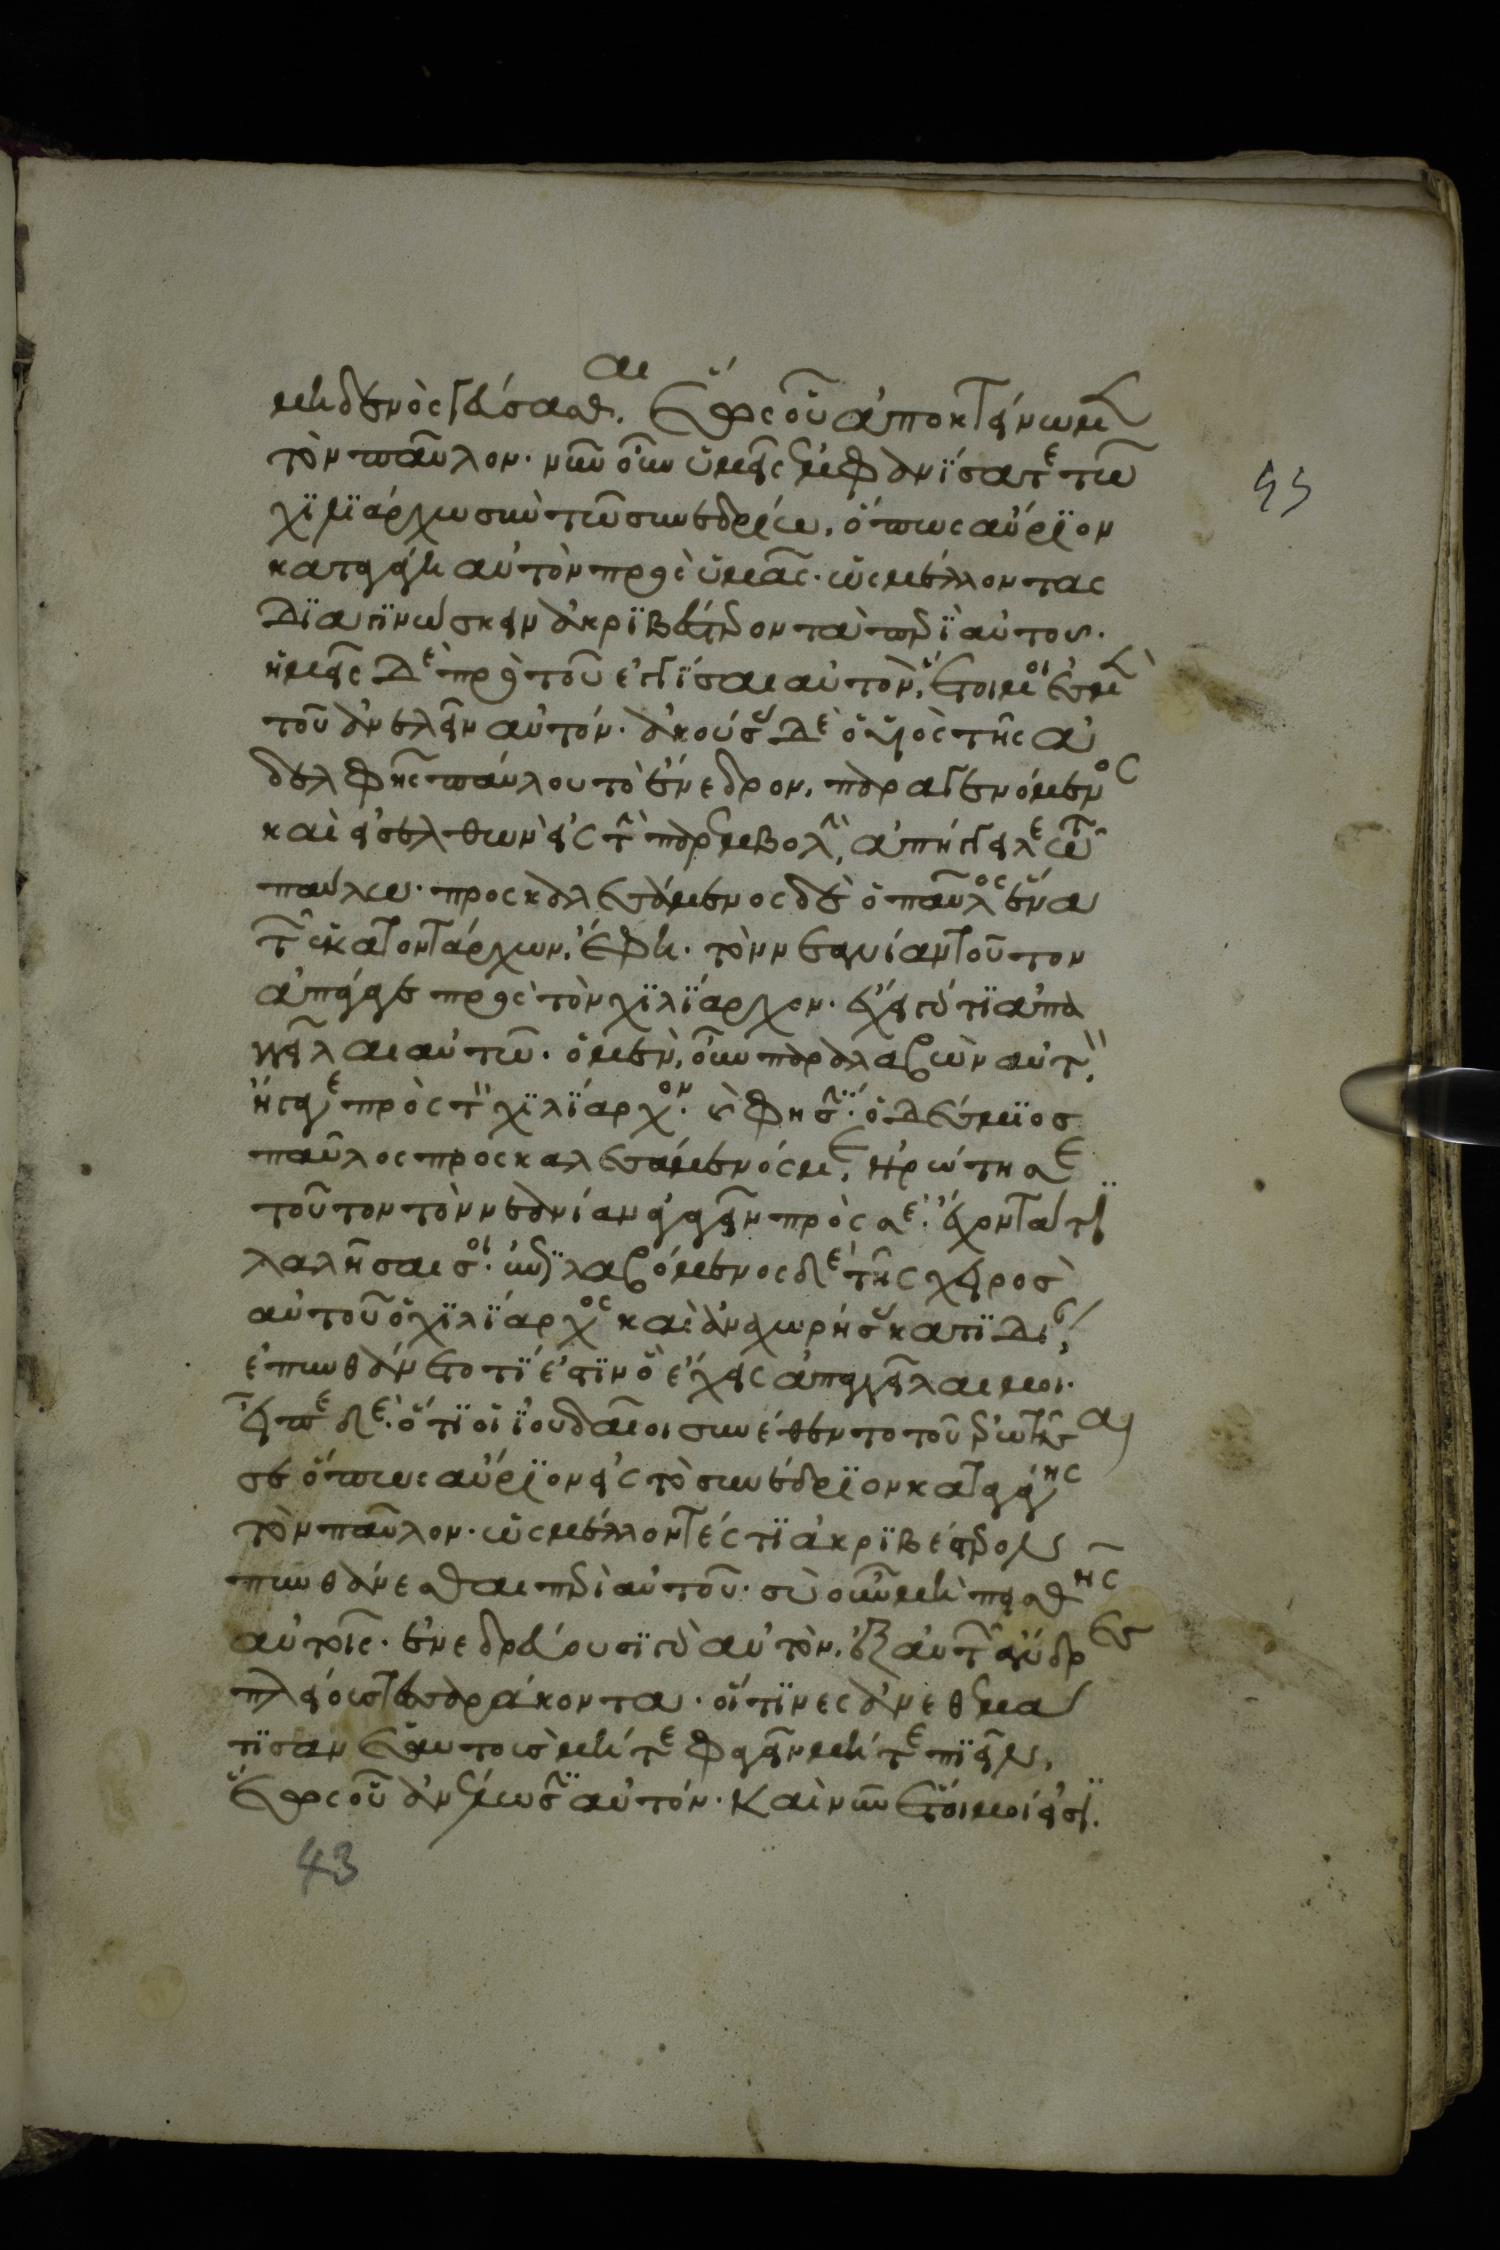 μηδενὸς γεύσασθαι. ἕως οὗ ἀποκτείνωμεν
τὸν παῦλον. νῦν οὖν ὑμεῖς ἐμφανΐσατε τῶ
χϊλϊάρχω σὺν τῶ συνεδρίω, ὅπως αὔρϊον
καταγάγη αὐτὸν πρὸς ὑμᾶς. ὡς μέλλοντας
δϊαγϊνώσκειν ἀκρϊβέστερον τὰ περῒ αὐτου.
ἡμεῖς δὲ πρὸ τοῦ ἐγγϊσαι αὐτὸν, ἕτοιμοι ἐσμὲν
τοῦ ἀνελεῖν αὐτόν. ἀκούσας δὲ ὁ υἱὸς τῆς ἀ
δελφῆς παύλου τὸ ἔνεδρον, παραγενόμενος
καὶ εἰσελθὼν εἰς τὴν παρεμβολὴν, ἀπήγγειλε τῶ
παύλω. προσκαλεσάμενος δὲ ὁ παῦλος ἕνα
τῶν ἑκατοντάρχων, ἔφη. τὸν νεανίαν τοῦτον
ἀπάγαγε πρὸς τὸν χϊλϊαρχον. ἔχει γάρ τϊ ἀπα
γγεῖλαι αὐτῶ. ὁ μὲν, οὖν παραλαβὼν αὐτὸν,
ἤγαγε πρὸς τὸν χϊλϊαρχον. καὶ φησΐν. ὁ δέσμϊος
παῦλος προσκαλεσάμενός με, ἠρώτησε
τοῦτον τὸν νεανίαν ἀγαγεῖν πρὸς σὲ. ἔχοντά τϊ
λαλῆσαι σοι. ἐπϊλαβόμενος δὲ τῆς χειρὸσ
αὐτοῦ ὁ χϊλϊαρχος καὶ ἀναχωρήσας κατϊδίαν,
ἐπυνθάνετο τϊ ἐστϊν ὃ ἔχεις ἀπαγγεῖλαι μοι.
εἶπε δὲ. ὅτϊ οἱ ϊουδαῖοι συνέθεντο τοῦ ἐρωτῆσαι
σε ὅπως αὔρϊον εἰς τὸ συνέδρϊον καταγάγης
τὸν παῦλον. ὡς μέλλοντές τϊ ἀκρϊβέστερον
πυνθάνεσθαι περὶ αὐτοῦ. σὺ οὖν μὴ πεισθῆς
αὐτοῖς. ἐνεδρεύουσϊ γὰρ αὐτὸν, ἐξ αὐτῶν ἄνδρες
πλείους τεσσαράκοντα. οἵτϊνες ἀνεθεμά
τϊσαν ἑαυτοὺσ μήτε φαγεῖν μήτε πϊεῖν,
ἕως οὗ ἀνέλωσϊν αὐτόν. καὶ νῦν ἕτοιμοί εἰσϊ.
43